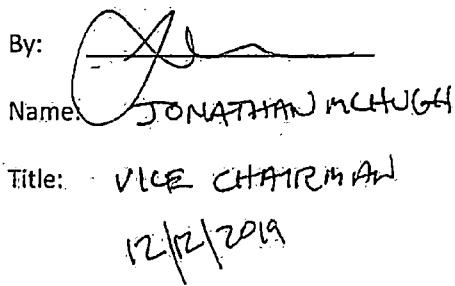 By:
Name: JONATHAN MCHUGH
Title: VICE CHAIRMAN
12/12/2019